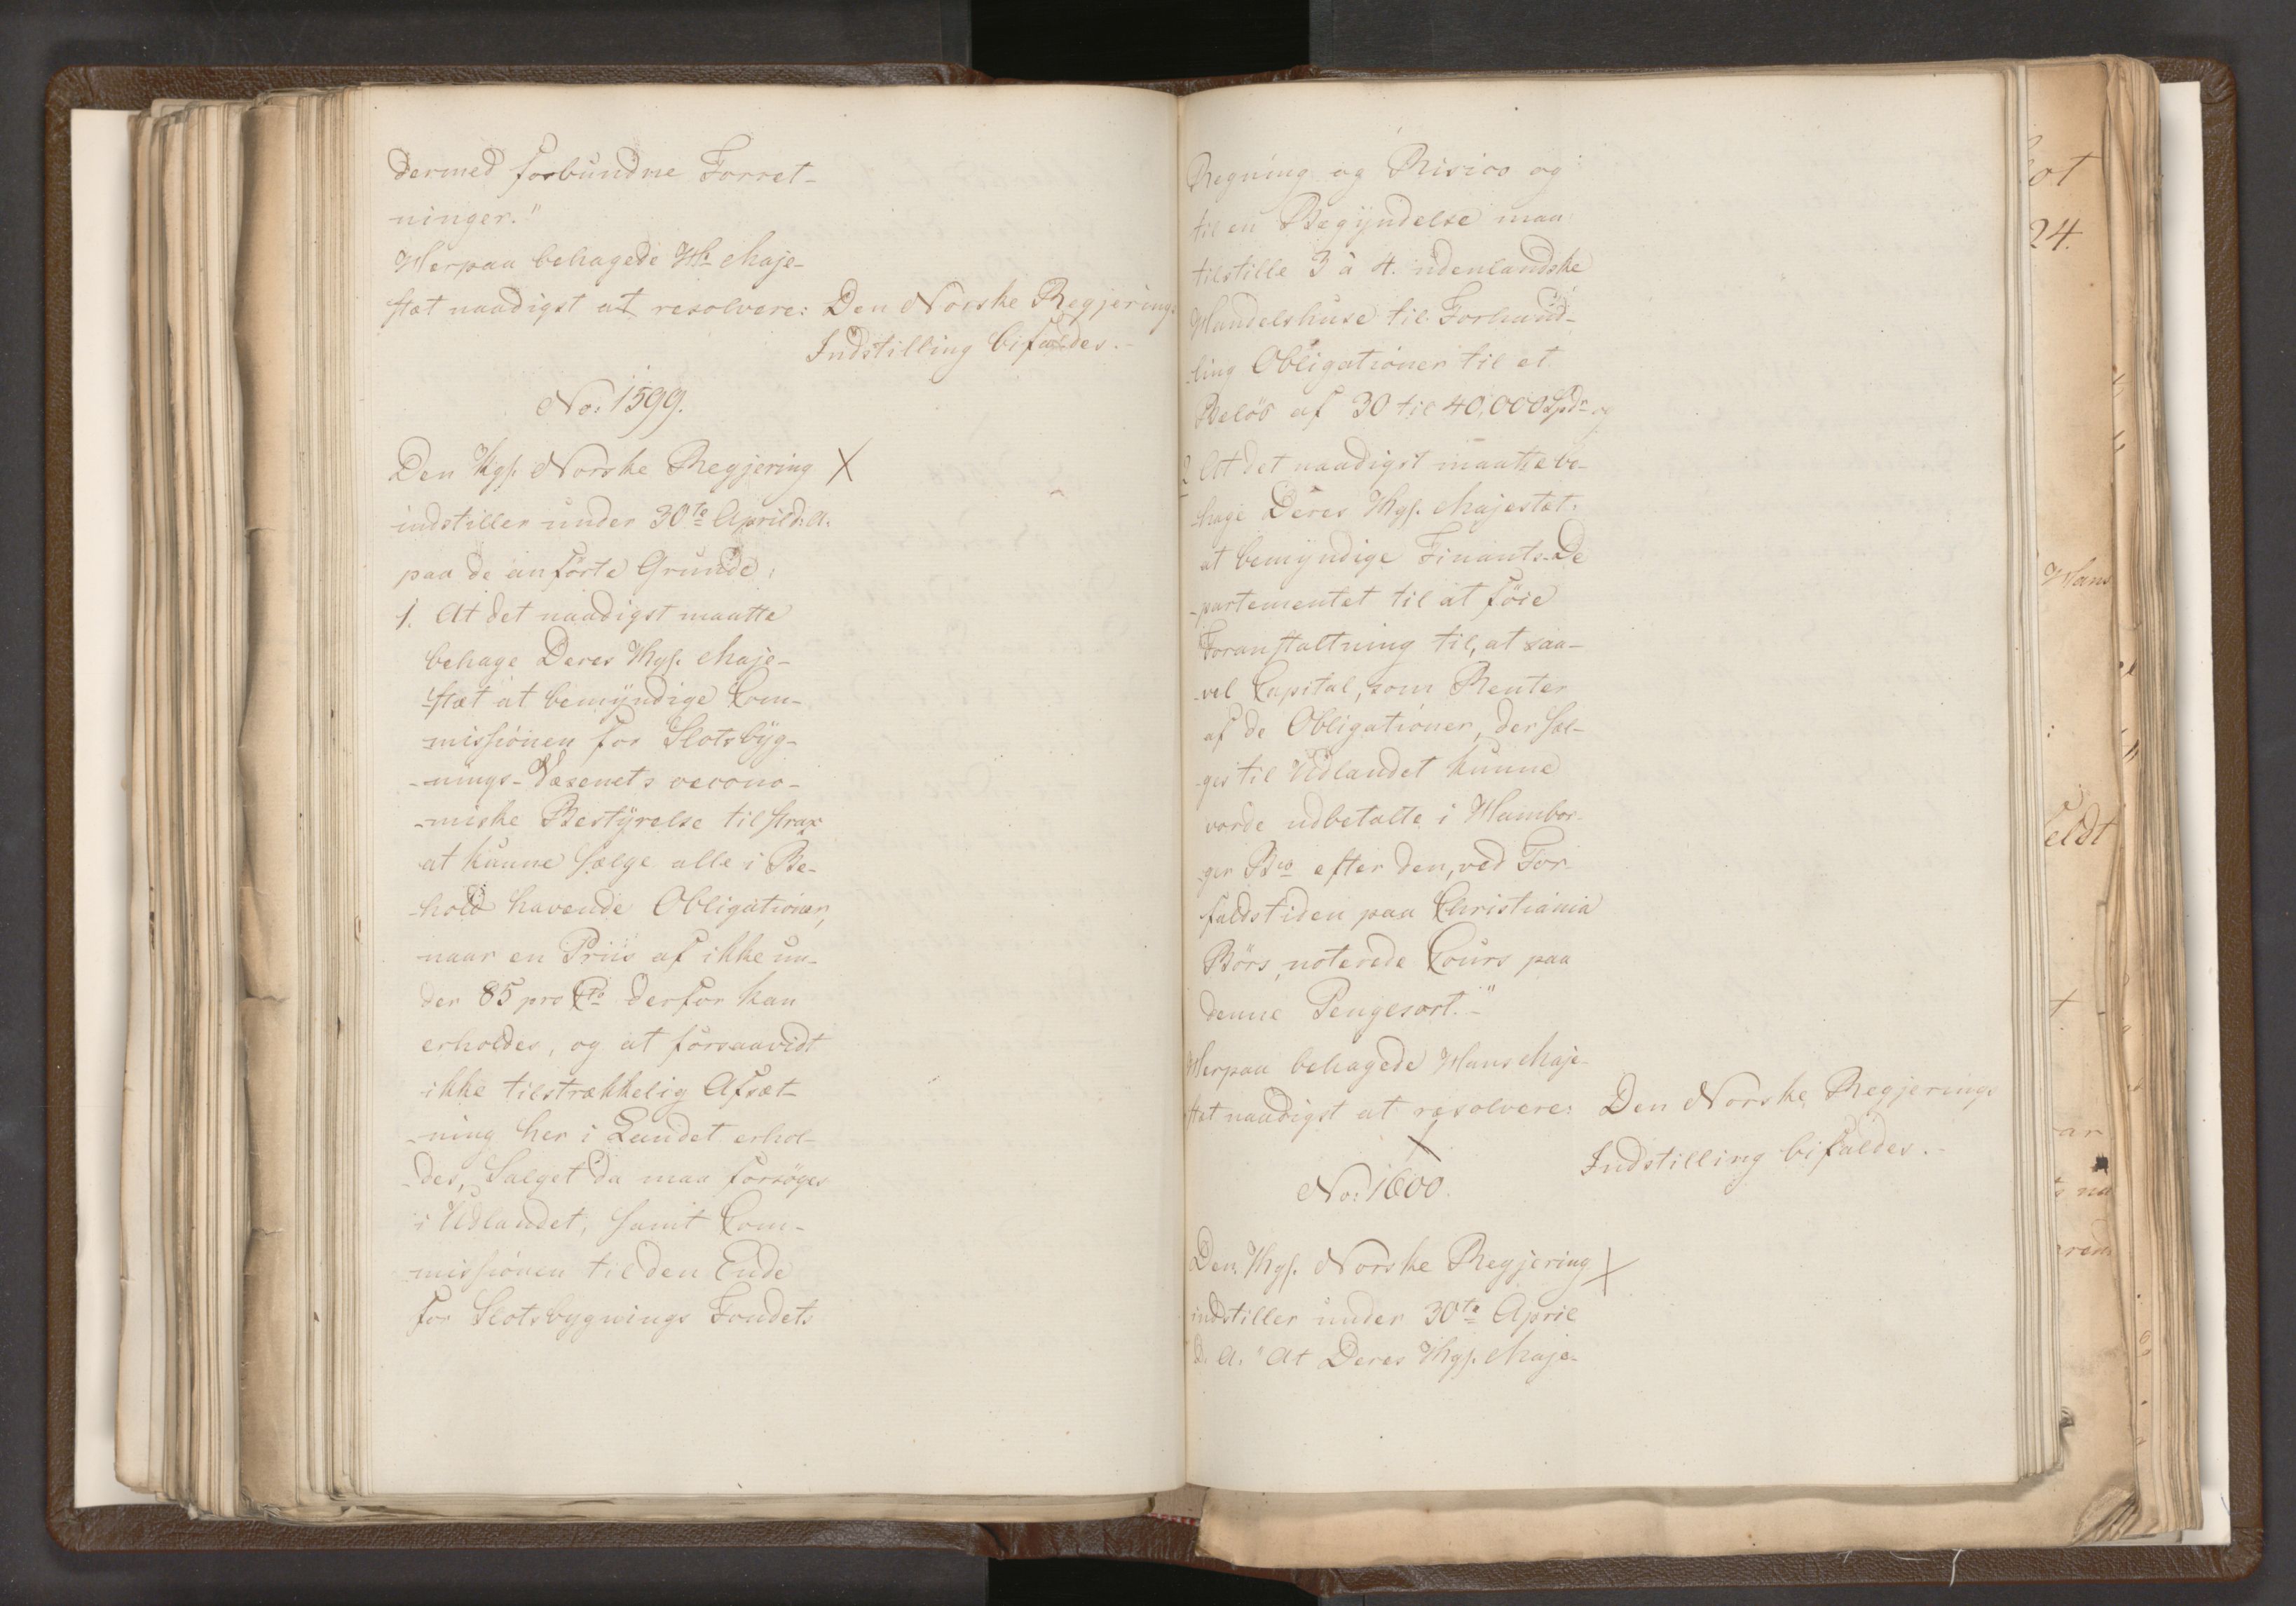 dermed forbundne Forret-
ninger."
Herpaa behagede Hs Maje-
stæt naadigst at resolvere: Den Norske Regjerings
Indstilling bifaldes.-
No: 1599.
Den Kgl. Norske Regjering X
indstiller under 30te April d: A:
paa de anførte Grunde:
1. At det naadigst maatte
behage Deres Kgl. Maje-
stæt at bemyndige Com-
missionen for Slotsbyg-
-nings-Væsenets oecono-
-miske Bestyrelse til strax
at kunne sælge alle i Be-
-hold havende Obligationer,
naar en Priis af ikke un-
der 85 pro Cto derfor kan
erholdes, og at forsaavidt
ikke tilstrækkelig Afsæt-
-ning her i Landet erhol-
-des, Salget da maa forsøges
i Udlandet, samt Com-
missionen til den Ende
for Slotsbygnings Fondets
Regning og Risico og
til en Begyndelse maa
tilstille 3 à 4. udenlandske
Handelshuse til Forhand-
-ling Obligationer til et
Beløb af 30 til 40,000 Spdr og
2 At det naadigst maatte be-
-hage Deres Kgl. Majestæt
at bemyndige Finants-De
-partementet til at føie
Foranstaltning til, at saa-
-vel Capital, som Renter
af de Obligationer, der sæl-
-ges til Udlandet kunne
vorde udbetalte i Hambor-
-ger Bco efter den, ved For-
faldstiden paa Christiania
Börs, noterede Cours paa
denne Pengesort."-
Herpaa behagede Hans Maje-
stæt naadigst at resolvere: Den Norske Regjerings
Indstilling bifaldes.-
X
No: 1600.
Den Kgl. Norske Regjering X
indstiller under 30te April
d. A. "At Deres Kgl. Maje-
ot
24.
Hans
feldt